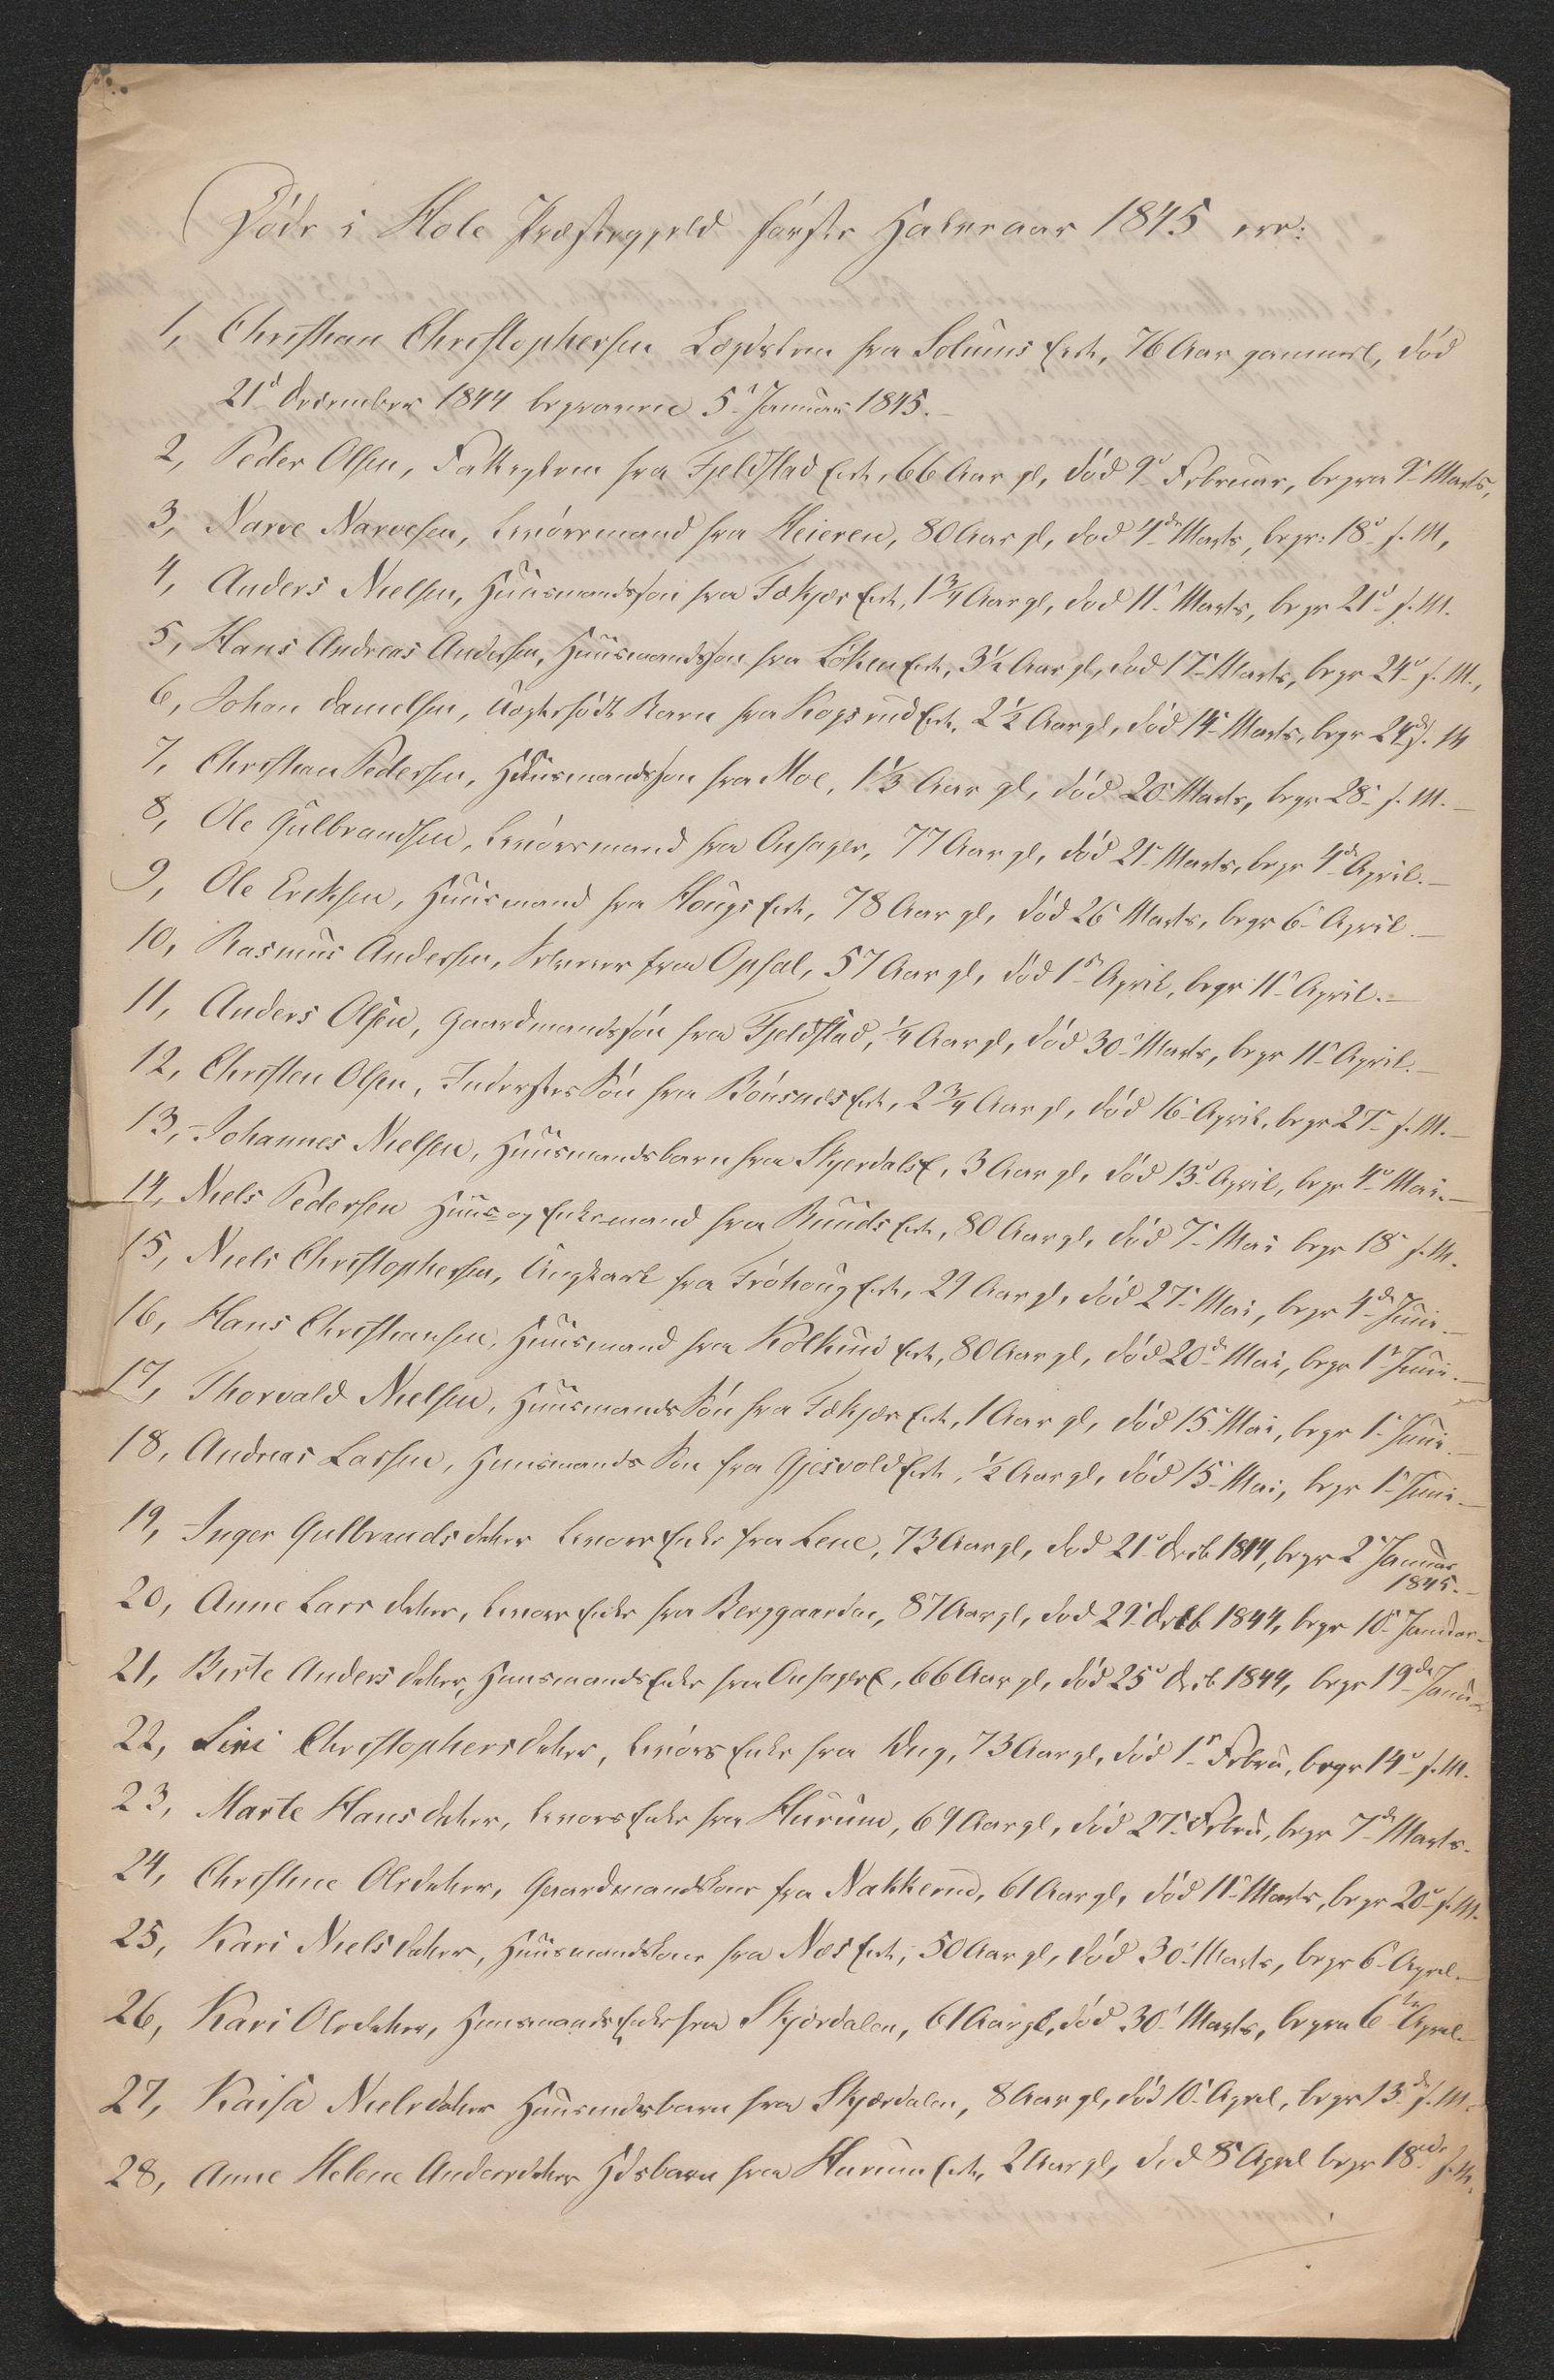 Døde i Hole Præstegjeld første Halvaar 1845 ere:
1, Christian Christophersen Lægdslem fra Solums Eie, 76 Aar gammel, død
21d December 1844 begraven 5te Januar 1845.
2, Peder Olsen, Fattiglem fra Fjeldstad Eie, 66 Aar gl, død 9d Februar, begra 9d Marts,
3, Narve Narvesen, Livöremand fra Heieren, 80 Aar gl, død 4de Marts, begr: 18d s. M,
4, Anders Nielsen, Huusmandssøn fra Fækjær Eie, 1 3/4 Aar gl, død 11te Marts, begr 21d s. M.
5, Hans Andreas Andersen, Huusmandssøn fra Løken Eie, 3 1/2 Aar gl, død 17de Marts, begr 24d s. M.,
6, Johan Danielsen, uægtefødt Barn fra Kogsrud Eie, 2 1/2 Aar gl, død 14de Marts, begr 24de s. M
7, Christian Pedersen, Huusmandssøn fra Moe, 1 1/3 Aar gl, død 20de Marts, begr 28de s. M.
8, Ole Gulbrandsen, Livörsmand fra Onsager, 77 Aar gl, død 21de Marts, begr 4de April.
9, Ole Ericksen, Huusmand fra Hougs Eie, 78 Aar gl, død 26 Marts, begr 6te April.
10, Rasmus Andersen, Selveier fra Opsal, 57 Aar gl, død 1ste April, begr 11te April.
11, Anders Olsen, Gaardmandssøn fra Fjeldstad, 1/4 Aar gl, død 30te Marts, begr 11te April.
12, Christen Olsen, Inderstes Søn fra Bönsnæs Eie, 2 3/4 Aar gl, død 16de April, begr 27de s. M.
13, Johannes Nielsen, Huusmandsbarn fra Skjerdals E, 3 Aar gl, død 13d April, begr 4de Mai.
14, Niels Pedersen Huus- og Enkemand fra Ruuds Eie, 80 Aar gl, død 7de Mai begr 18de s. M.
15, Niels Christophersen, Ungkarl fra Frøhoug Eie, 29 Aar gl, død 27de Mai, begr 4de Juni.
16, Hans Christiansen, Huusmand fra Rolkind Eie, 80 Aar gl, død 20de Mai, begr 1ste Juni.
17, Thorvald Nielsen, Huusmands Søn fra Fækjær Eie, 1 Aar gl, død 15de Mai, begr 1ste Juni.
18, Andreas Larsen, Huusmands Søn fra Gjesvold Eie, 1/2 Aar gl, død 15de Mai, begr 1ste Juni
19, Inger Gulbrandsdatter Livörs Enke fra Lene, 73 Aar gl, død 21d Decb 1844, begr 2d Januar
1845.
20, Anne Larsdatter, Livörs Enke fra Berggaarden, 87 Aar gl, død 29d Decb 1844, begr 10de Januar
21, Birte Andersdatter, Huusmands Enke fra Onsager E, 66 Aar gl, død 25d Decb 1844, begr 19de Janu
22, Siri Christophersdatter, Livörs Enke fra Vig, 73 Aar gl, død 1ste Febru, begr 14d s. M.
23, Marte Hansdatter, Livörs Enke fra Hurum, 69 Aar gl, død 27de Febru, begr 7de Marts.
24, Christine Olsdatter, Gaardmandskone fra Nakkerud, 61 Aar gl, død 11te Marts, begr 20d s. M.
25, Kari Nielsdatter, Huusmandskone fra Næs Eie, 50 Aar gl, død 30te Marts, begr 6te April.
26, Kari Olsdatter, Huusmands Enke fra Skjørdalen, 61 Aar gl, død 30te Marts, begra 6te April.
27, Kaisa Nielsdatter Huusmdsbarn fra Skjærdalen, 8 Aar gl, død 10de April, begr 13de s. M.
28, Anne Helene Andersdatter Hdsbarn fra Hurum Eie, 2 Aar gl, død 8de April begr 18de s. M.